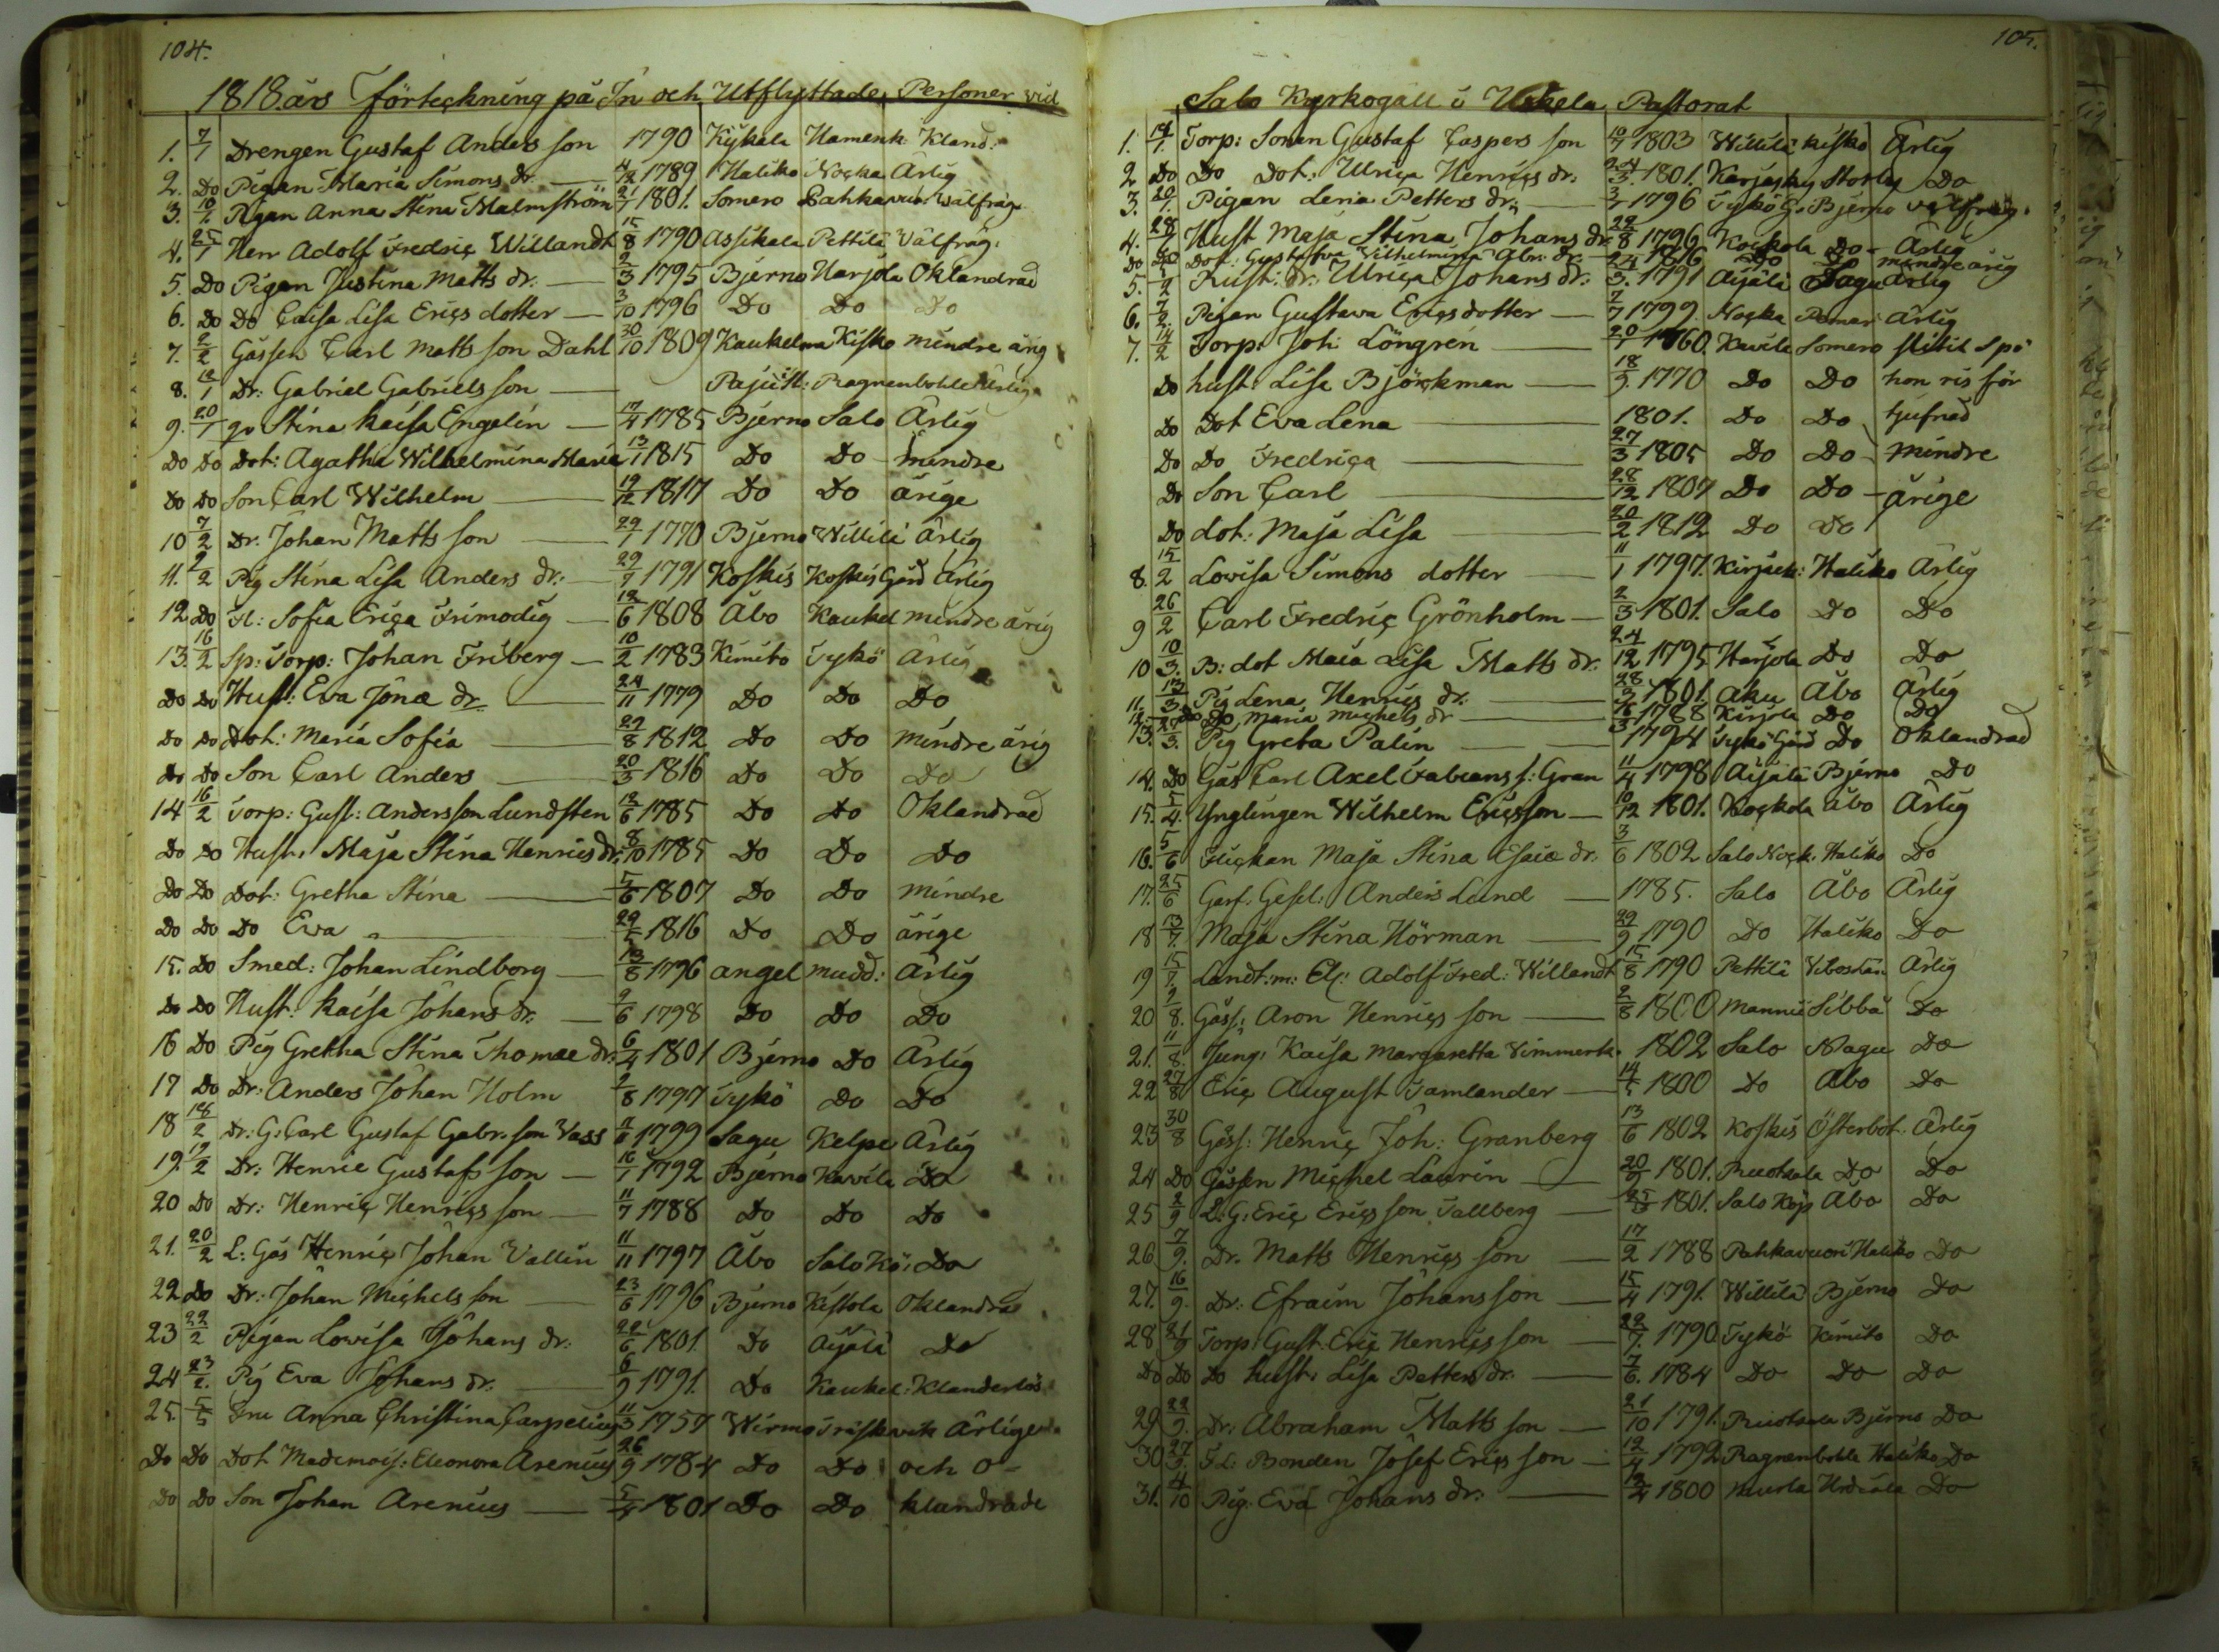 104.
1818 års Förteckning på In och Utflyttade Personer vid
1. 7/1 Drengen Gustaf Anders son 1790 Kykala Hamenk Kland:
2. Do Pigan Maria Simons dr. 4/12 1789 Haliko Nocka Ärlig
3. 10/1. Pigan Anna Stina Malmström 21/7 1801. Somero Pahkavuor Wälfräg
4. 25/1 Herr Adolf Fredric Willandt 15/8 1790 Assikala Pettilä Välfräg:
5. Do Pigan Justina Matts dr. 2/3 1795 Bjerno Harjola Oklandrad
6. Do Do Caisa Lisa Erics dotter 3/10 1796 Do Do Do
7. 2/2 Gåssen Carl Matts son Dahl 30/10 1809 Kaukelma Kisko mindre årig
8. 12/1 Dr: Gabriel Gabriels son Pajuist: Pragnenbohle Ärlig
9. 20/1 qv Stina Kaisa Engelin 17/4 1785 Bjerno Salo Ärlig
Do Do Dot: Agatha Wilhelmina Maria 13/1 1815 Do Do mindre
Do Do Son Carl Wilhelm 19/12 1817 Do Do årige
10 7/2 Dr. Johan Matts son 29/7 1770 Bjerno Willilä Ärlig
11. 2/2 Pig Stina Lisa Anders dr: 29/7 1791 Koskis Koskis Gård Ärlig
12 Do Fl: Sofia Erica Frimodig 12/6 1808 Åbo Kaukel mindre årig
13. 16/2 Sp: Torp: Johan Friberg 10/2 1783 Kimito Tykö Ärlig
Do Do Hust: Eva Jonæ dr 24/11 1779 Do Do Do
Do Do Dot: Maria Sofia 29/8 1812 Do Do mindre årig
Do Do Son Carl Anders 20/3 1816 Do Do Do
14 16/2 Torp: Gust: Andersson Lundsten 12/6 1785 Do Do Oklandrad
Do Do Hust: Maja Stina Henrics dr: 8/10 1785 Do Do Do
Do Do Dot: Gretha Stina 5/6 1807 Do Do mindre
Do Do Do Eva 29/5 1816 Do Do årige
15. Do Smed: Johan Lindborg 13/8 1796 angel mudd: Ärlig
Do Do Hust: Kaisa Johans dr. 9/6 1798 Do Do Do
16 Do Pig Gretha Stina Thomæ dr: 6/4 1801 Bjerno Do Ärlig
17 Do Dr: Anders Johan Holm 9/8 1797 Tykö Do Do
18 18/2 Dr: G: Carl Gustaf Gabr. son Vass 1799 Sagu Kelpe Ärlig
19. 19/2 Dr: Henric Gustafs son 16/1 1792 Bjerno Kavila Do
20 Do Dr: Henric Henrics son 11/7 1788 Do Do Do
21. 20/2 L: Gås Henric Johan Vallin 11/11 1797 Åbo Salo Kö: Do
22 Do Dr: Johan Michels son 23/6 1796 Bjerno Kestola Oklandrad
23 22/2 Pigan Lowisa Johans dr: 22/6 1801 Do Aijälä Do
24 23/2. Pig Eva Johans dr. 6/9 1791. Do Kaukel: Klanderlös
25. 5/5 Fru Anna Christina Carpelius 11/3 1757 Wirmo Friskvik Ärlige
Do Do Dot Mademois: Eleonora Arenius 26/9 1784 Do Do och o-
Do Do Son Johan Arenius 5/4 1801 Do Do klandrade
105.
Salo Kyrkogäll i Uskela Pastorat
1. 14/1. Torp: Sonen Gustaf Caspers son 10/7 1803 Willilä Kisko Ärlig
2 Do Do Dot: Ulrica Henrics dr: 24/3. 1801. Karjasky Storby Do
3. 20/1. Pigan Lena Petters dr: 3/7 1796 Tykö G: Bjerno välfräg.
4. 28/1 Hust Maja Stina Johans dr 29/8 1796 Kockola Do Ärlig
Do Do Dot: Gustafva Vilhelmina Abr: dr. 24 1816 Do Do mindre årig
5. 1/2 Rust: dr. Ulrica Johans dr: 3. 1791 Aijälä Sagu Ärlig
6. 7/2. Pigan Gustava Erics dotter 2/7 1799. Nocka Pemar Ärlig
7. 14/2 Torp: Joh: Löngren 20/1 1760. Kavila Somero slitit spö
Do hust: Lisa Björckman 18/9. 1770 Do Do hon ris för
Do Dot Eva Lena 1801. Do Do tjufnad
Do Do Fredrica 27/3 1805 Do Do mindre
Do Son Carl 28/12 1807 Do Do årige
Do dot: Maja Lisa 20/2 1812 Do Do
8. 15/2 Lovisa Simons dotter 11/1 1797. Kirjack: Haliko Ärlig
9 26/2 Carl Fredric Grönholm 2/3 1801. Salo Do Do
10 10/3. B: dot Maia Lisa Matts dr. 24/12 1795 Harjola Do Do
11. 13/3 Pig Lena Henrics dr. 28/2 1801. Aku Åbo Ärlig
12. Do Do Maria Michels dr 16 1788 Kirjola Do Do
13. 27/3. Pig Greta Palin 3 1794 Tykö Gård Do Oklandrad
14. Do Gås Carl Axel Fabians s: Gran 11/4 1798 Aijälä Bjerno Do
15. 5/4. Ynglingen Wilhelm Ericsson 10/12 1801. Kockola Åbo Ärlig
16. 5/6 Flickan Maja Stina Esaiæ dr. 3/6 1802 Salo Nock. Haliko Do
17. 25/6 Garf: Gesel: Anders Lund 1785. Salo Åbo Ärlig
18 13/7. Maja Stina Hörman 29/9 1790 Do Haliko Do
19 15/7. Landt: m: El: Adolf Fred: Willandt 15/8 1790 Pettilä Viborslän Ärlig
20 9/8. Gåss: Aron Henrics son 2/8 1800 Mannie Sibbå Do
21. 11/8. Jung: Kaisa Margaretta Vimmerk. 1802 Salo Nagu Do
22 27/8 Eric August Tamlander 14/5 1800 Do Åbo Do
23 30/8 Gåss: Henric Joh: Granberg 13/6 1802 Koskis Österbot. Ärlig
24 Do Gåssen Michel Laurin 20/9 1801. Ruotsala Do Do
25 2/9 L: G: Eric Erics son Tallberg 25 1801. Salo Köp Åbo Do
26 7/9. Dr. Matts Henrics son 17/2 1788 Pahkavuori Haliko Do
27. 16/9. Dr: Efraim Johans son 15/4 1791. Willilä Bjerno Do
28 21/9 Torp: Gust: Eric Henrics son 22/7. 1790 Tykö Kimito Do
Do Do Do hust: Lisa Petters dr. 7/6. 1784 Do Do Do
29 22/9. Dr: Abraham Matts son 21/10 1791. Ruotsala Bjerno Do
30 27/9. Fd: Bonden Josef Erics son 12/4 1792 Pragnenbohle Haliko Do
31. 4/10 Pig: Eva Johans dr: 12/4 1800 Muurla Do